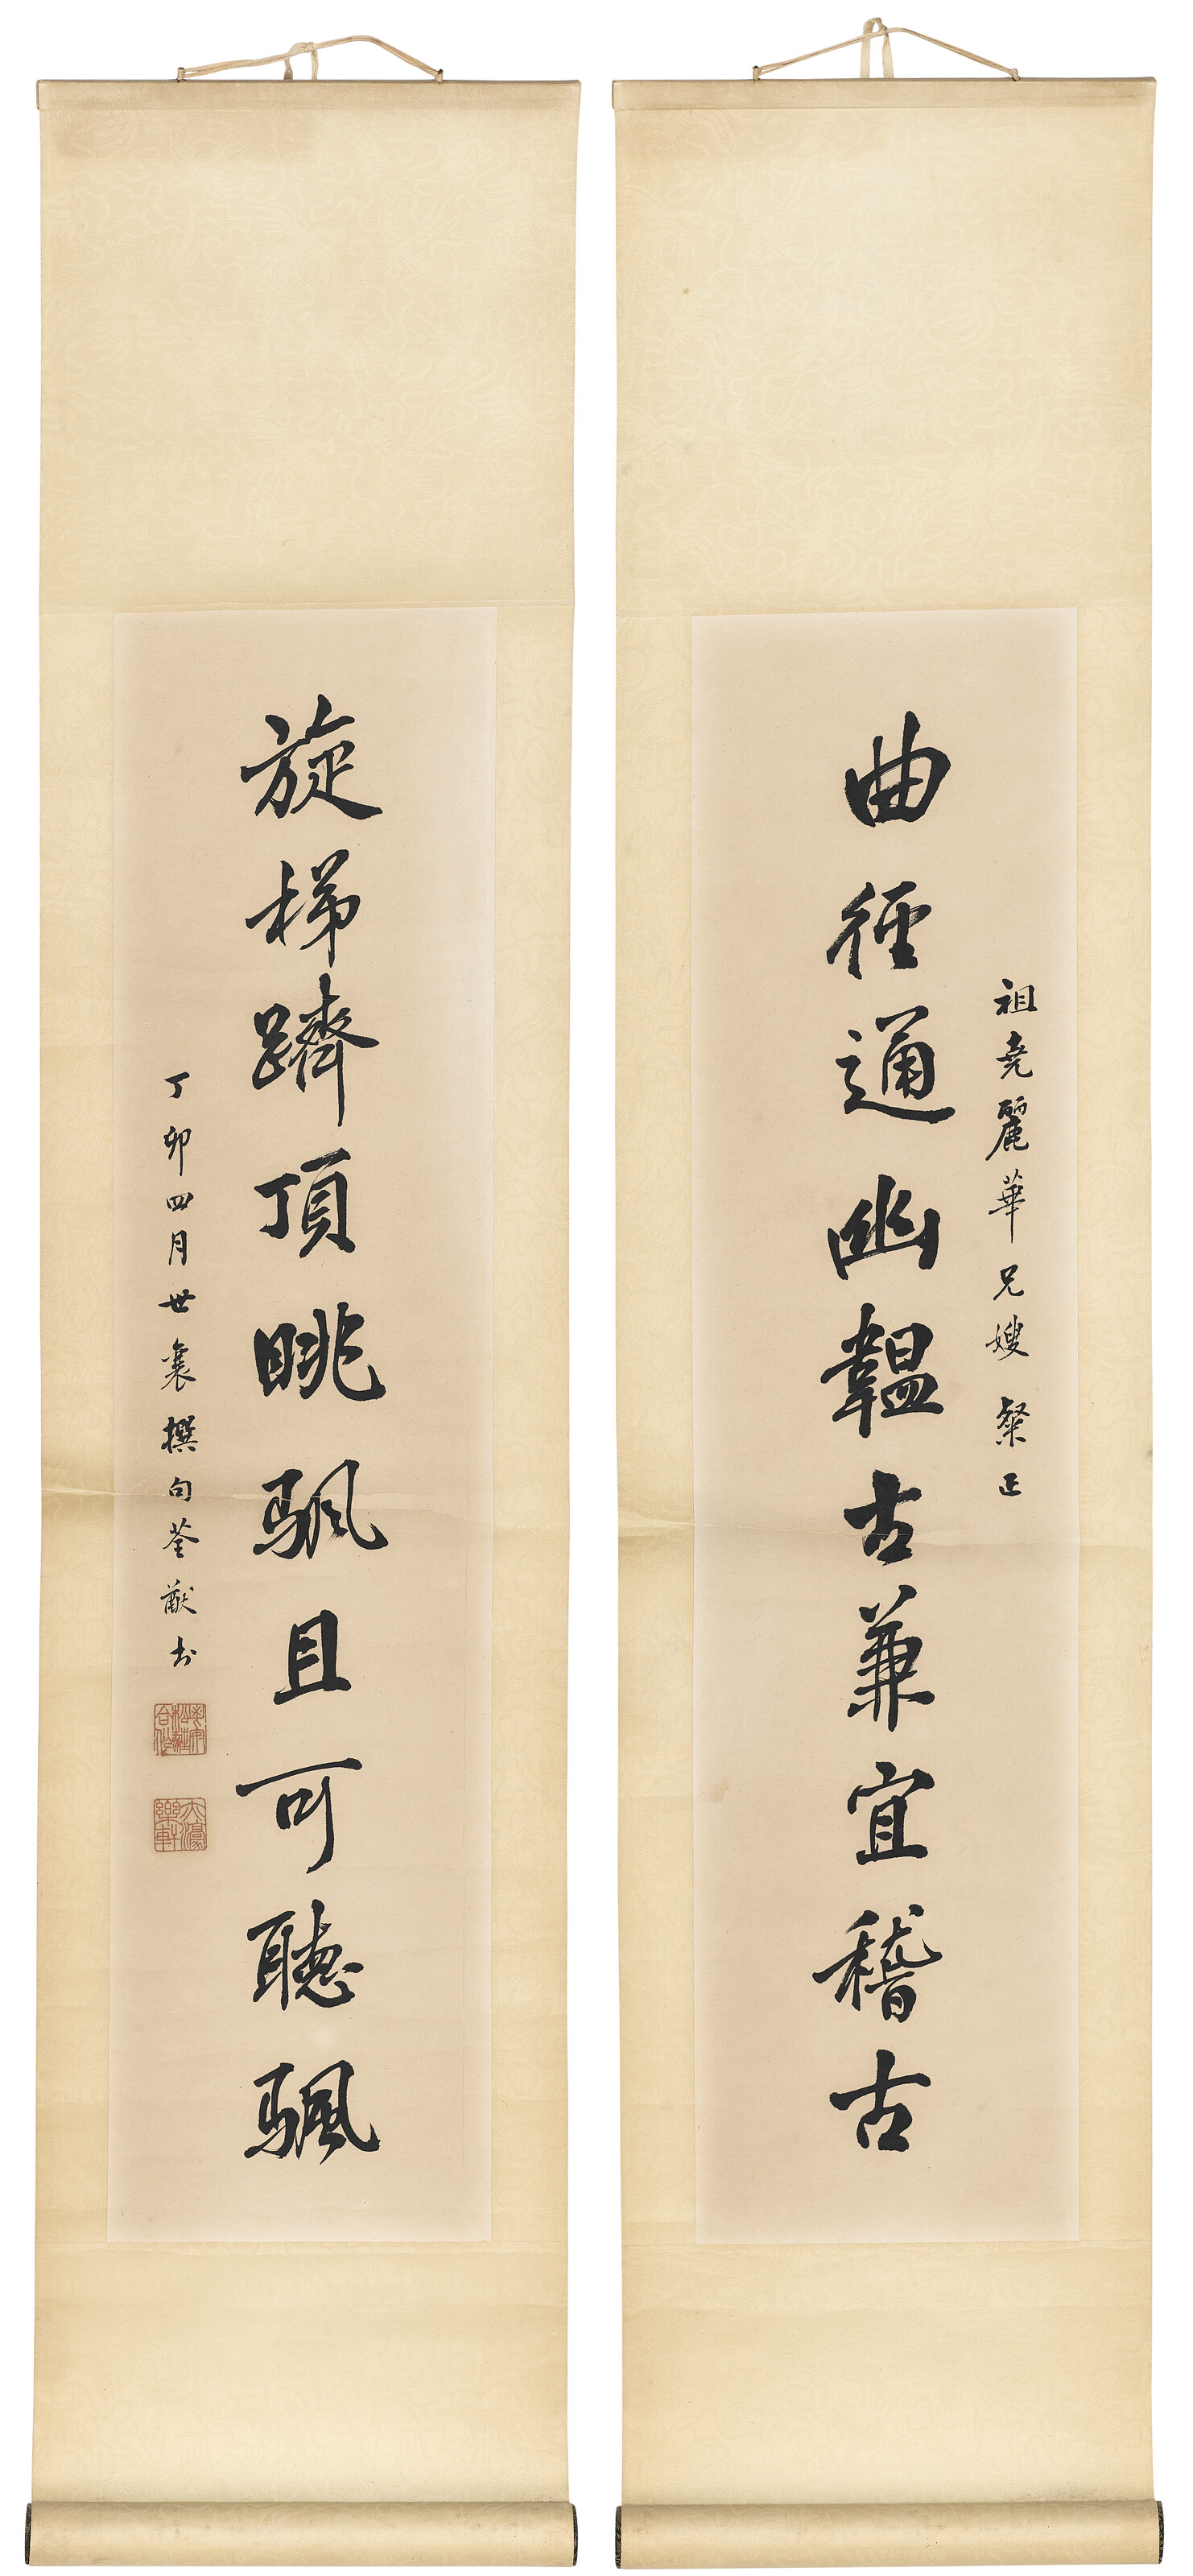 祖堯麗華兄嫂粲正
曲徑通幽韞古兼宜稽古
旋梯躋頂眺颿且可聽颿
丁卯四月世襄撰句荃猷书